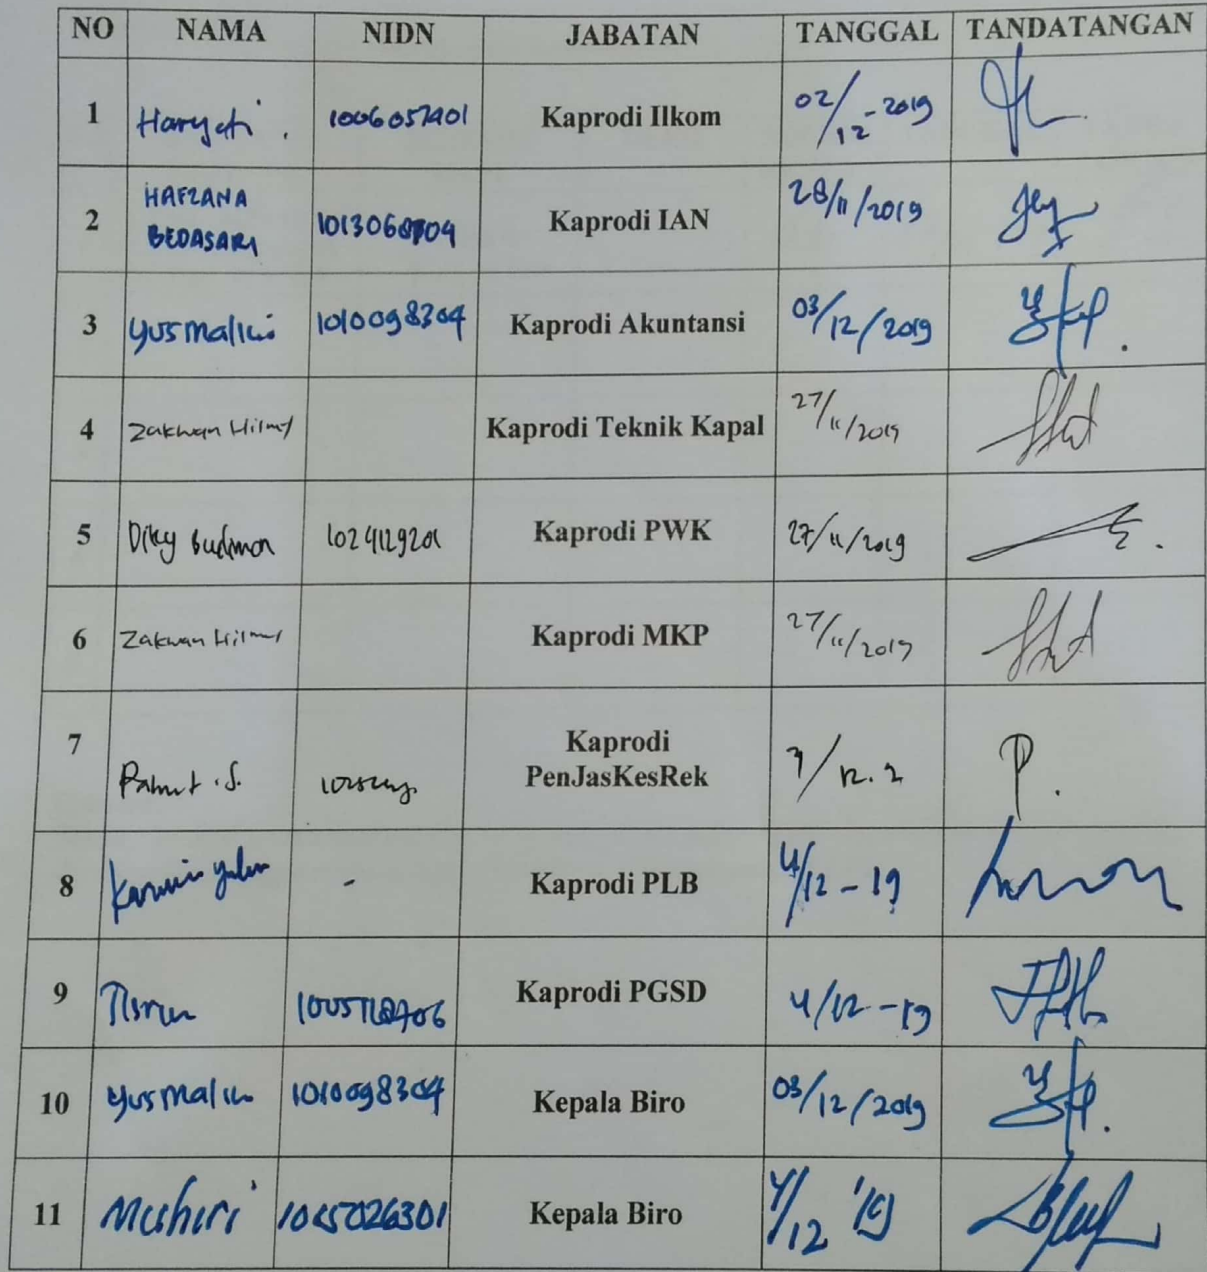 NO NAMA NIDN JABATAN TANGGAL TANDATANGAN
1 Haryati. 1006057401 Kaprodi Ilkom 02/12-2019
2 HAFZANA BEDASARI Kaprodi IAN 28/11/2019
3 yusmalinì 1010098304 Kaprodi Akuntansi 03/12/2019
4 Zakwan Hilmy Kaprodi Teknik Kapal 27/11/2019
5 Diky Budiman 1024129201 Kaprodi PWK 27/11/2019
6 Zakwan Hilmy Kaprodi MKP 27/11/2019
7 Kaprodi
PenJasKesRek
8 - Kaprodi PLB 4/12 - 19
9 Kaprodi PGSD 4/12 - 19
10 yusmalini 1010098304 Kepala Biro 03/12/2019
11 Kepala Biro 4/12 '19